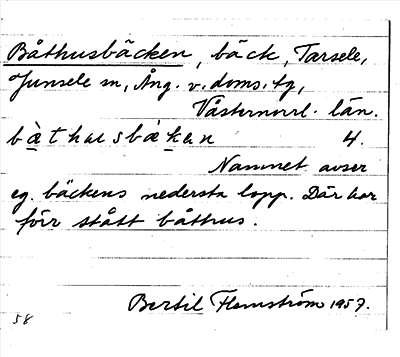 Båthusbäcken, bäck, Tarsele,
Junsele sn, Ång. v. doms. tg,
Västernorrl. län.
bàthusbäkan 4.
Namnet avser
eg. bäckens nedersta lopp. Där har
förr stått båthus.
Bertil Flemström 1957.
58